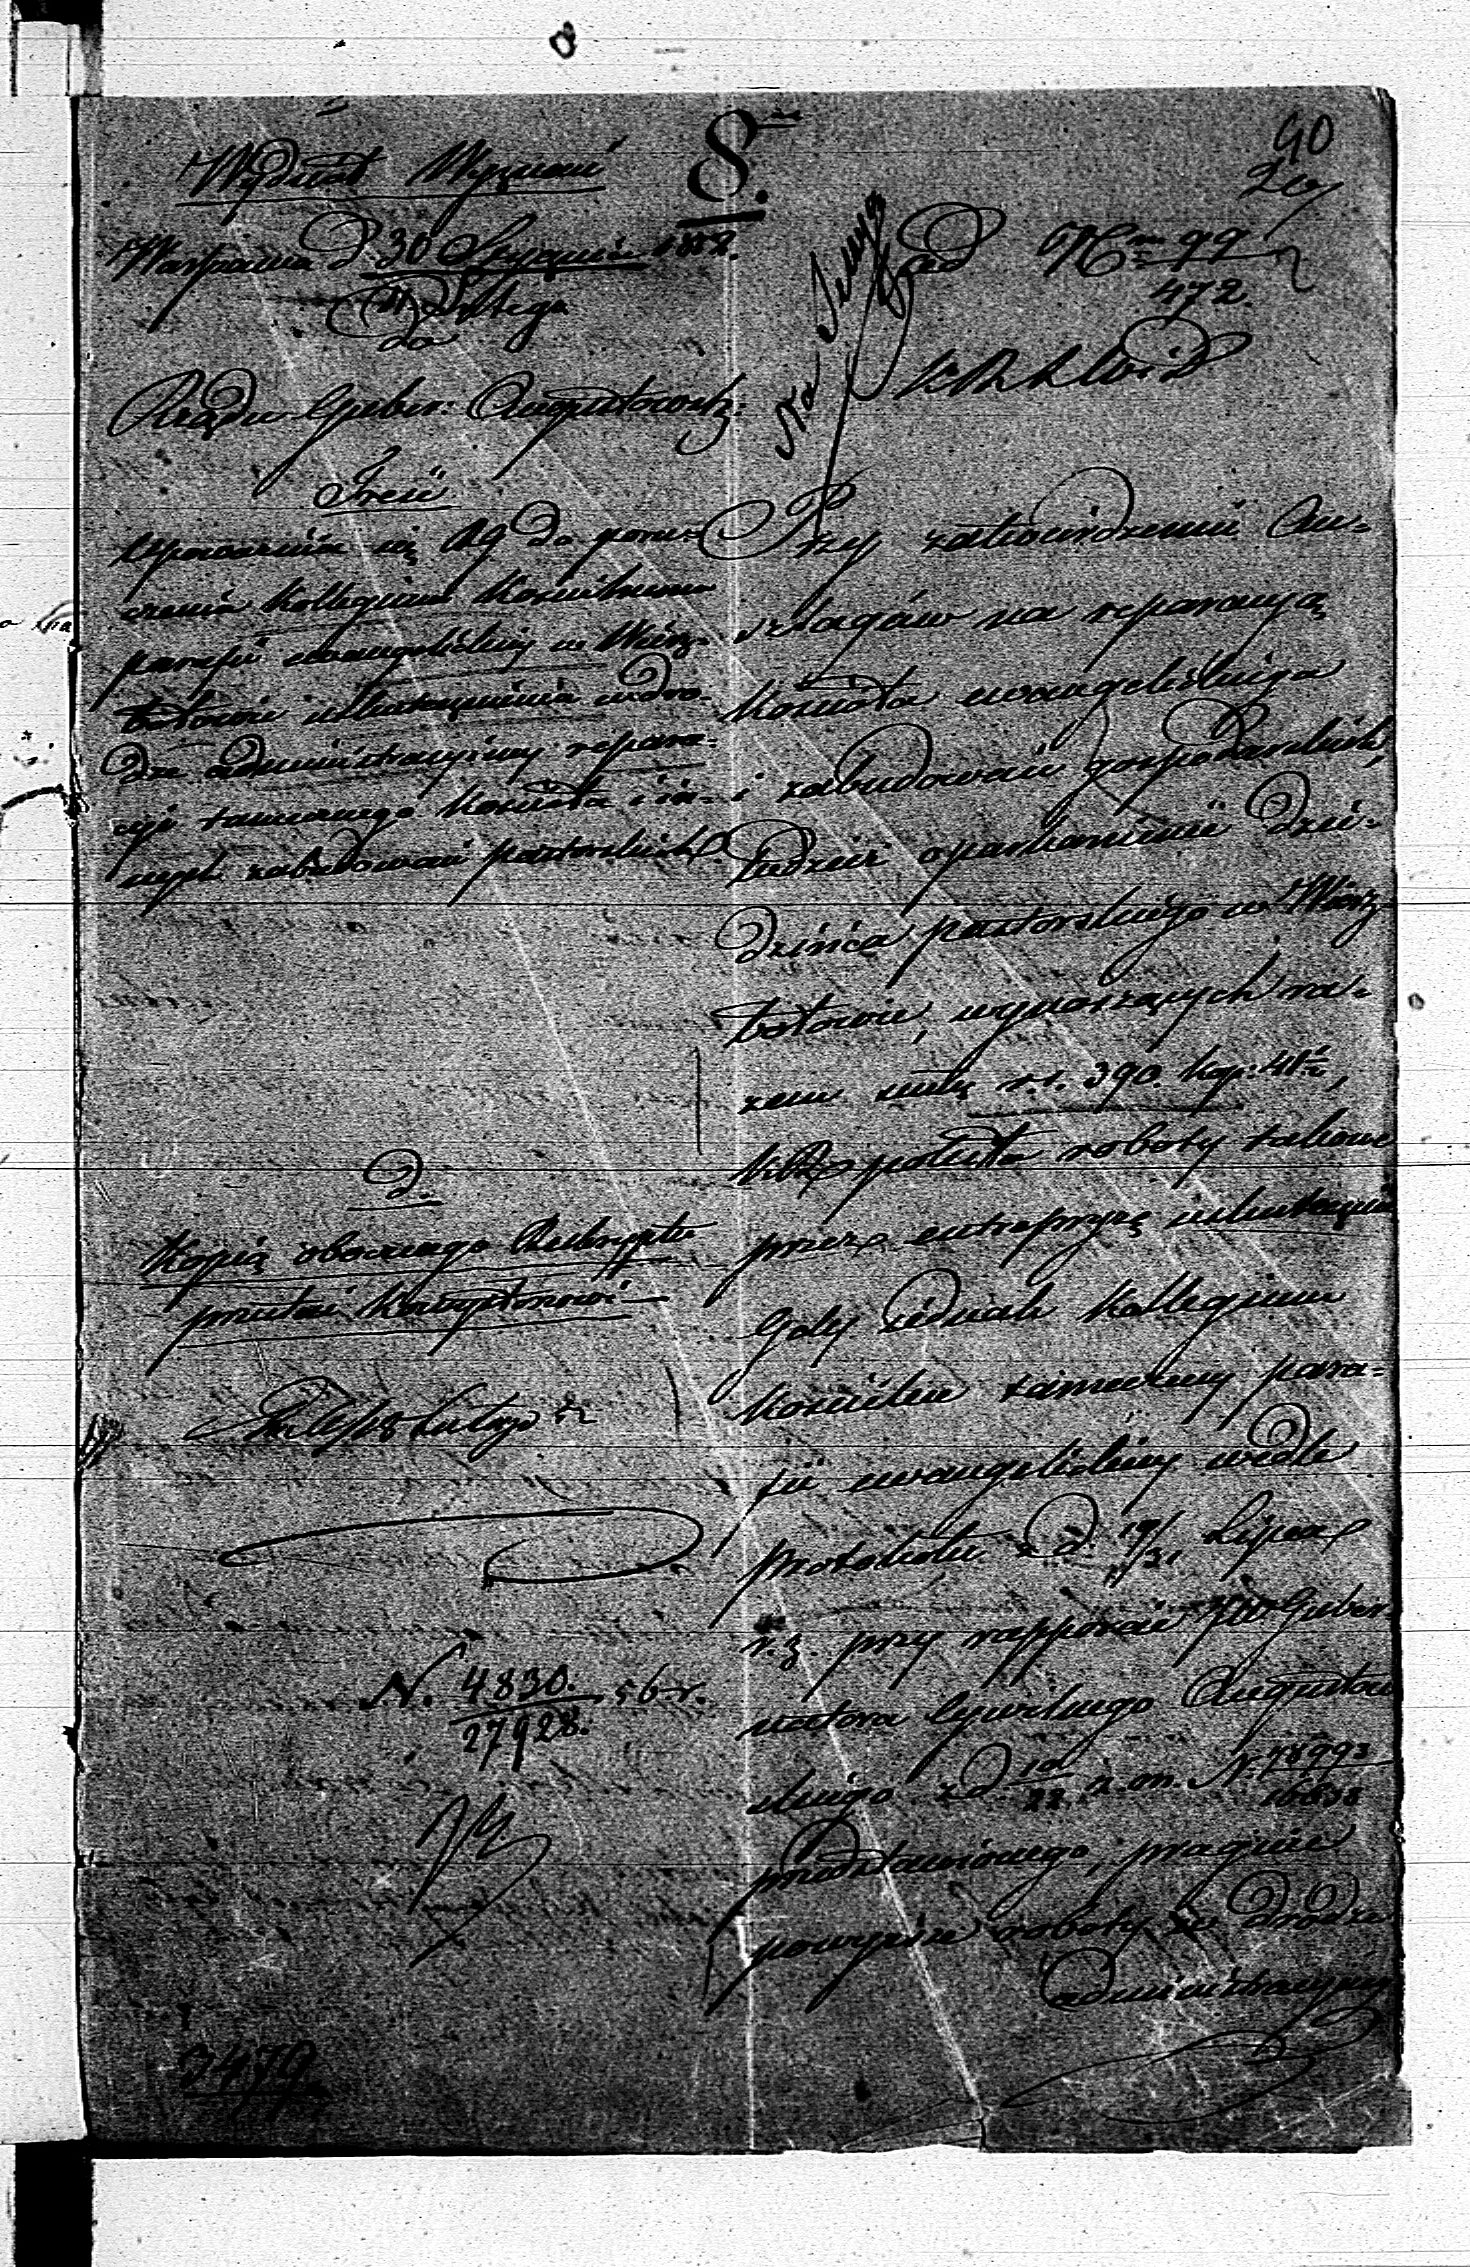 Wydział Wyznań
8.
40
Warszawa d. 30 Stycznia 1858.
11 Lutego
do
Rządu Guber: Augustowsk:
ad N 99
472.
Treść
Upoważnia się RG do poru-
czenia Kollegium Kościelnemu
parafii ewangelickiej w Wisz-
tytowie uskutecznienia w dro-
dze administracyjnej repara-
cyi tamecznego Kościoła i in-
nych zabudowań pastorskich
2.
Kopią obecnego Reskryptu
przesłać
18 Lutego
N. 4830. 56 r.
27928.
3479
Przy zatwierdzeniu An-
szlagów na reparacyą
Kościoła ewangelickiego
i zabudowań gospodarskich,
tudzież oparkanienie dzie-
dzińca pastorskiego w Wisz-
tytowie, wynoszących ra-
zem sumę r.s. 390. kop: 41½,
poleciła roboty takowe
przez entrepryzę uskutecznić
Gdy jednak Kollegium
Kościelne tamecznej para-
fii ewangelickiej wedle
protokołu z d. 19/31 Lipca
r. z. przy rapporcie JW Guber
natora Cywilnego Augustow
skiego z d. 10/22 n. m. N. 78993
16838
przedstawionego, pragnie
powyższe roboty w drodze
administracyjnej